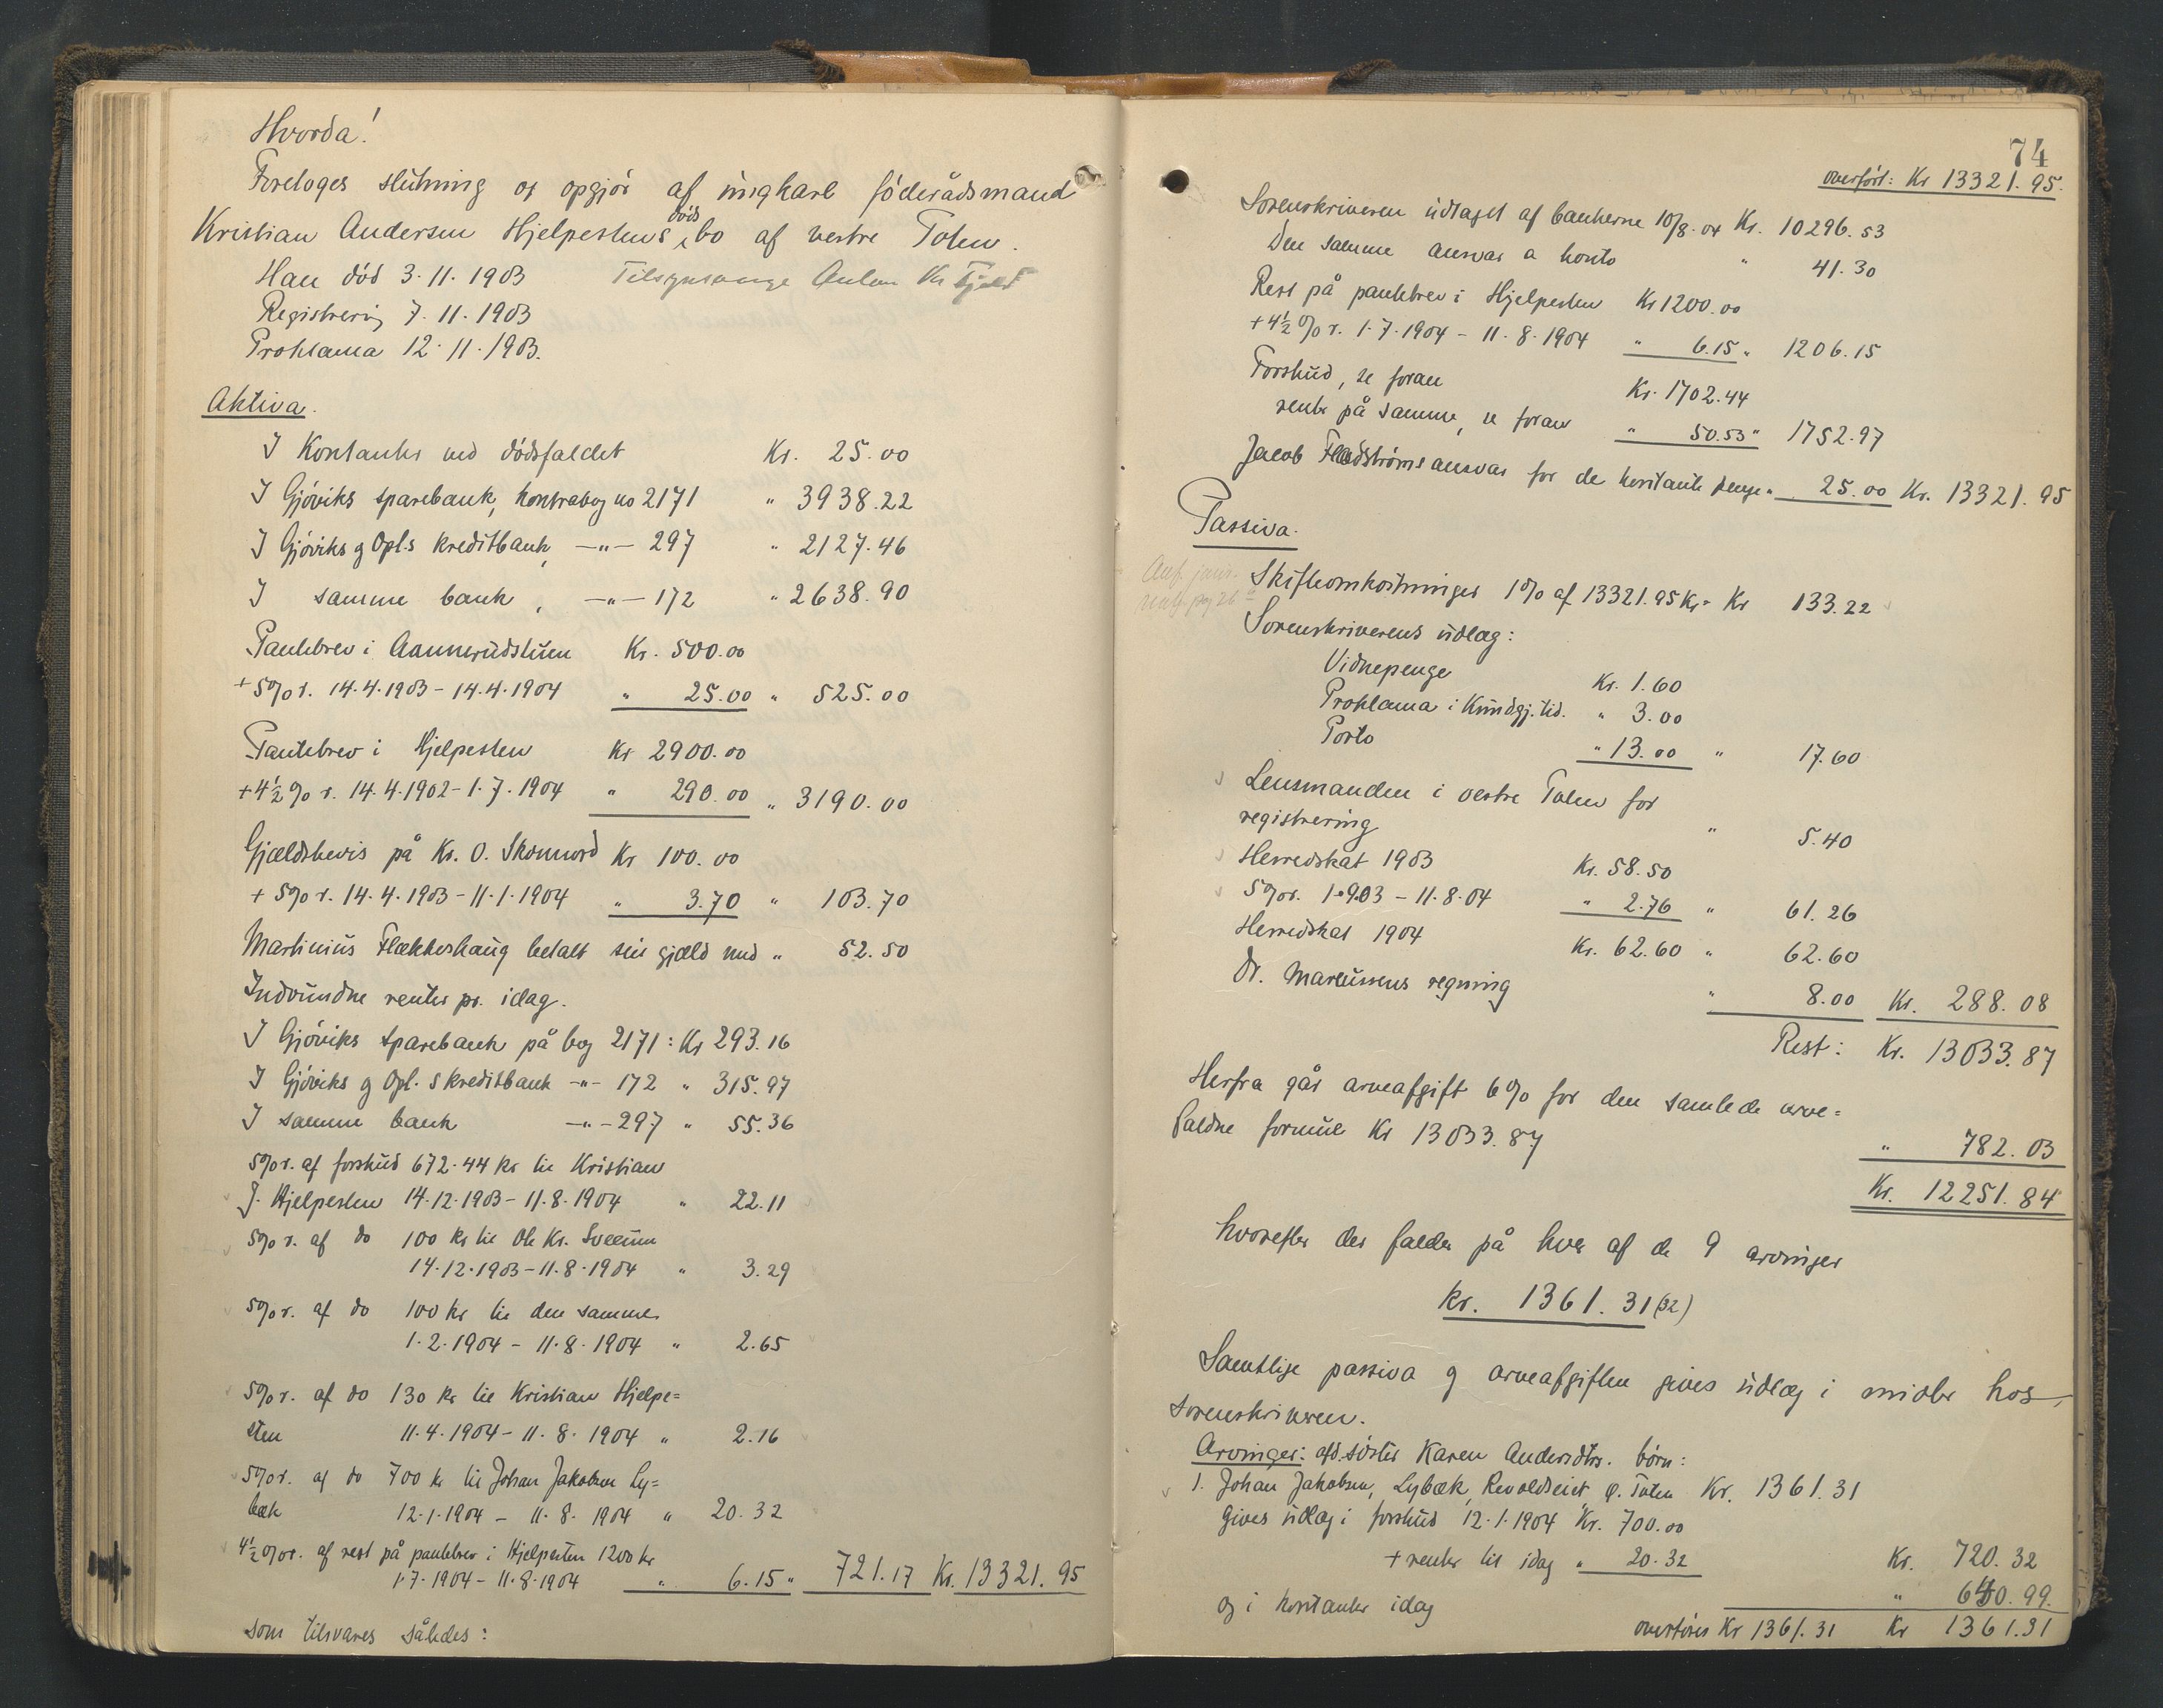 Hvorda!
Foretoges slutning og opgjør af ungkarl föderådsmand
Kristian Andersen Hjelpestens döds bo af vestre Toten.
Han död 3.11.1903 Anton Kr
Registrering 7.11.1903
Proklama 12.11.1903.
Aktiva.
I Kontanter ved dödsfaldet Kr. 25.00
I Gjöviks sparebank, kontrabog no 2171 " 3938.22
I Gjöviks og Opl.s kreditbank, —"— 297 " 2127.46
I samme bank, —"— 172 " 2638.90
Pantebrev i Aannerudstuen Kr. 500.00
+ 5% r. 14.4.1903 - 14.4.1904 " 25.00 " 525.00
Pantebrev i Hjelpesten Kr 2900.00
+ 4½ % r. 14.4.1902 - 1.7.1904 " 290.00 " 3190.00
Gjældsbevis på Kr. O. Skonnord Kr 100.00
+ 5% r. 14.4.1903 - 11.1.1904 " 3.70 " 103.70
Martinius Flækkeshaug betalt sin gjæld med " 52.50
Indvundne renter pr. idag.
I Gjöviks sparebank på bog 2171: Kr 293.16
I Gjöviks og Opl.s kreditbank -"- 172 " 315.97
I samme bank —"— 297 " 55.36
5% r. af forskud 672.44 kr til Kristian
J. Hjelpesten 14.12.1903 - 11.8.1904 " 22.11
5% r. af do 100 kr til Ole Kr. Sveum
14.12.1903 - 11.8.1904 " 3.29
5% r. af do 100 kr til den samme
1.2.1904 - 11.8.1904 " 2.65
5% r. af do 130 kr til Kristian Hjelpe=
sten 11.4.1904 - 11.8.1904 " 2.16
5% r. af do 700 kr til Johan Jakobsen Ly=
bæk 12.1.1904 - 11.8.1904 " 20.32
4½ % r. af rest på pantebrev i Hjelpesten 1200 kr
1.7.1904 - 11.8.1904 " 6.15 " 721.17 Kr. 13321.95
som tilsvares således:
74
overført: Kr 13321.95.
Sorenskriveren udtaget af bankerne 10/8.04 Kr. 10296.53
Den samme ansvar a konto " 41.30
Rest på pantebrev i Hjelpesten Kr 1200.00
+ 4½ % r. 1.7.1904 - 11.8.1904 " 6.15 " 1206.15
Forskud, se foran Kr. 1702.44
rente på samme, se foran " 50.53 " 1752.97
Jacob Fladstrøms ansvar for de kontante penge " 25.00 Kr. 13321.95
Passiva.
Skifteomkostninger 1% af 13321.95 Kr = Kr 133.22
Sorenskriverens udlæg:
Vidnepenge Kr. 1.60
Proklama i Kundgj. tid. " 3.00
Porto " 13.00 " 17.60
Lensmanden i vestre Toten for
registrering " 5.40
Herredskat 1903 Kr. 58.50
5% r. 1.9.03 - 11.8.04 " 2.76 " 61.26
Herredskat 1904 Kr. 62.60 " 62.60
Dr. Marcussens regning " 8.00 Kr. 288.08
Rest: Kr. 13033.87
Herfra går arveafgift 6% for den samlede arve=
faldne formue Kr 13033.87 " 782.03
Kr. 12251.84
hvorefter der falder på hver af de 9 arvinger
kr. 1361.31 (32)
Samtlige passiva og arveafgiften gives udlæg i midler hos
sorenskriveren.
Arvinger: afd. søster Karen Andersdtrs. børn:
1. Johan Jakobsen, Lybæk, Revoldseiet, Ø. Toten Kr. 1361.31
gives udlæg i forskud 12.1.1904 Kr. 700.00
+ renter til idag " 20.32 Kr. 720.32
og i kontanter idag " 640.99.
overføres Kr 1361.31 Kr 1361.31